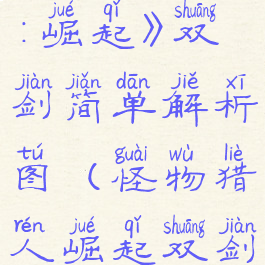 jué qǐ shuāng
：崛起》双
jiàn jiǎn dān jiě xī
剑简单解析
tú guài wù liè
图（怪物猎
rén jué qǐ shuāng jiàn
人崛起双剑